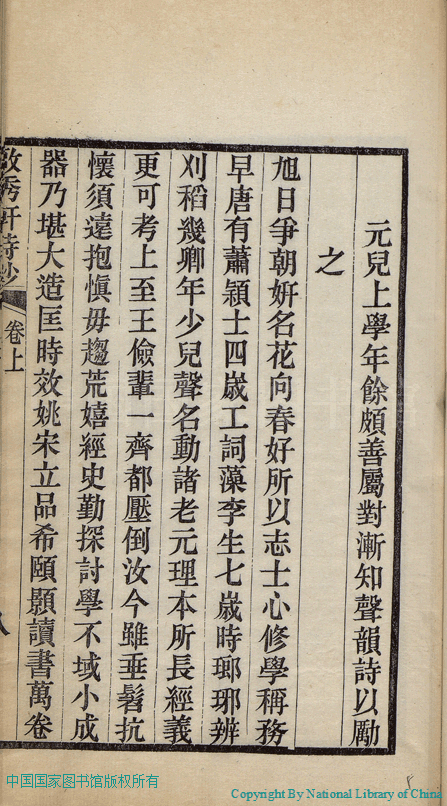 元兒上學年餘頗善屬對漸知聲韻詩以勵
之
旭日爭朝妍名花向春好所以志士心修學稱務
早唐有蕭穎士四歲工詞藻李生七歲時瑯琊辨
刈稻幾卿年少兒聲名動諸老元理本所長經義
更可考上至王儉輩一齊都壓倒汝今雖垂髫抗
懷須遠抱愼毋趨荒嬉經史勤探討學不域小成
器乃堪大造匡時效姚宋立品希頤顥讀書萬卷
秀軒詩鈔
卷上
八
中国国家图书馆版权所有
Copyright By National Library of China